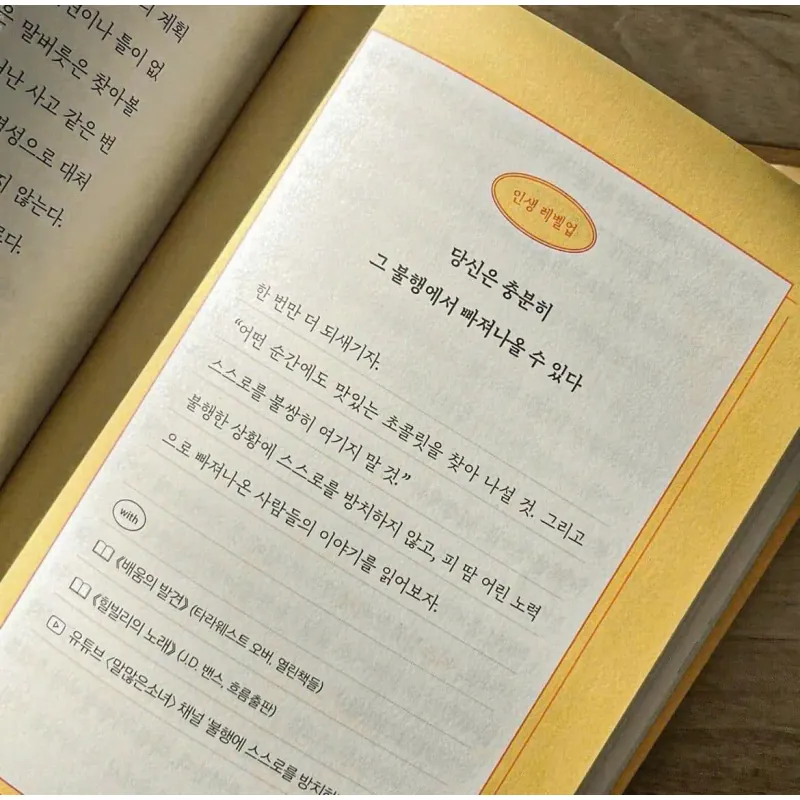 계획
이나 틀이 없
은 말버릇은 찾아볼
난 사고 같은 변
성으로 대처
지 않는다.
인생 레벨업
당신은 충분히
그 불행에서 빠져나올 수 있다
한 번만 더 되새기자.
“어떤 순간에도 맛있는 초콜릿을 찾아 나설 것. 그리고
스스로를 불쌍히 여기지 말 것.”
불행한 상황에 스스로를 방치하지 않고, 피 땀 어린 노력
으로 빠져나온 사람들의 이야기를 읽어보자.
with
《배움의 발견》 (타라웨스트 오버, 열린책들)
《힐빌리의 노래》 (J.D. 밴스, 흐름출판)
유튜브 〈말많은소녀〉 채널 '불행에 스스로를 방치하